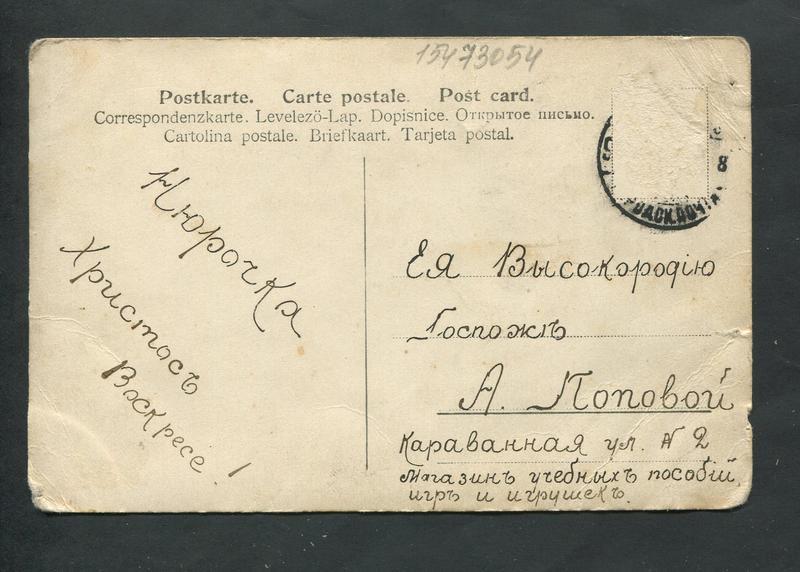 15473054
Postkarte. Carte postale. Post card.
Correspondenzkarte. Levelezö-Lap. Dopisnice. Открытое письмо.
Cartolina postale. Briefkaart. Tarjeta postal.
8
ГОРОДСК.ПОЧТА
Нюрочка
Христосъ
Воскресе!
Ея Высокородію
Госпожѣ
А. Поповой
Караванная ул. № 2
Магазинъ учебныхъ пособій
игръ и игрушекъ.